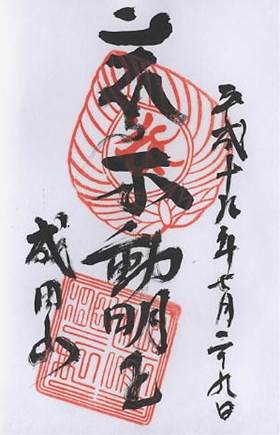 平成十九年七月二十九日
不動明王
成田山